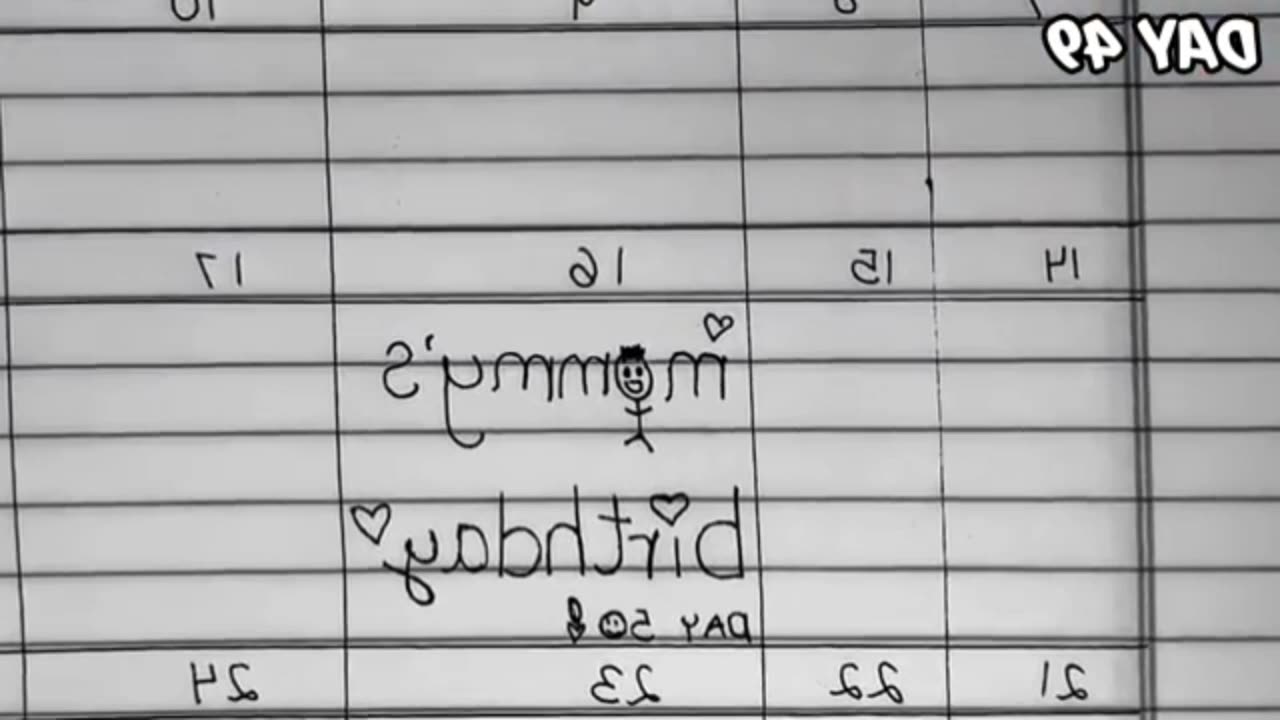 DAY 49
14 15 16 17
mommy's
birthday
DAY 50!
21 22 23 24